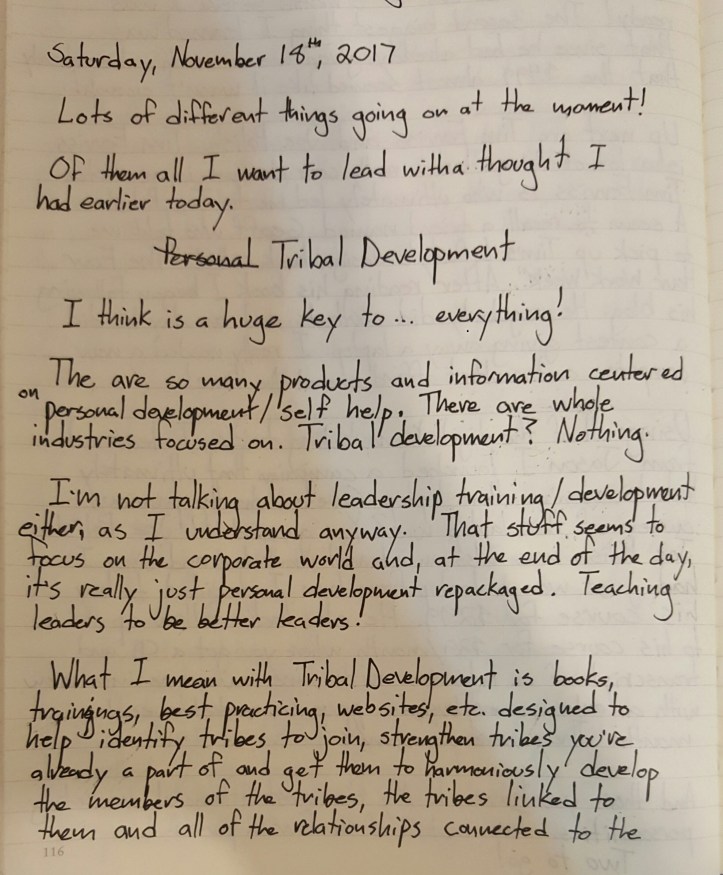 Saturday, November 18th, 2017
Lots of different things going on at the moment!
Of them all I want to lead with a thought I
had earlier today.
Personal Tribal Development
I think is a huge key to... everything!
The are so many products and information centered
on personal development/self help. There are whole
industries focused on. Tribal development? Nothing.
I'm not talking about leadership training/development
either, as I understand anyway. That stuff seems to
focus on the corporate world and, at the end of the day,
it's really just personal development repackaged. Teaching
leaders to be better leaders!
What I mean with Tribal Development is books,
traingings, best practicing, websites, etc. designed to
help identify tribes to join, strengthen tribes you've
already a part of and get them to harmoniously develop
the members of the tribes, the tribes linked to
them and all of the relationships connected to the
116